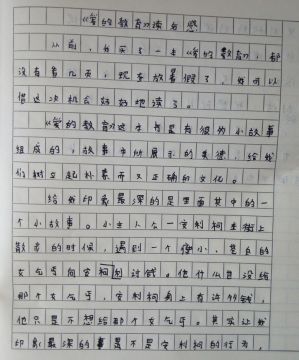 《爱的教育》读后感
从前，我买了一本《爱的教育》，都
没有看几页，现在放暑假了，我可以
借这次机会好好地读了。
《爱的教育》这本书是有很多小故事
组成的，故事中所展示的美德，给我
们树立起朴素而又正确的文化。
给我印象最深的是里面其中的一
个小故事。小主人公一安利柯在街上
散步的时候，遇到一个瘦小、苍白的
女乞丐向安利柯讨钱。他什么也没给
那个女乞丐，安利柯身上有许多钱，
他只是不想给那个女乞丐。其实让我
印象最深的事是不是安利柯的行为，